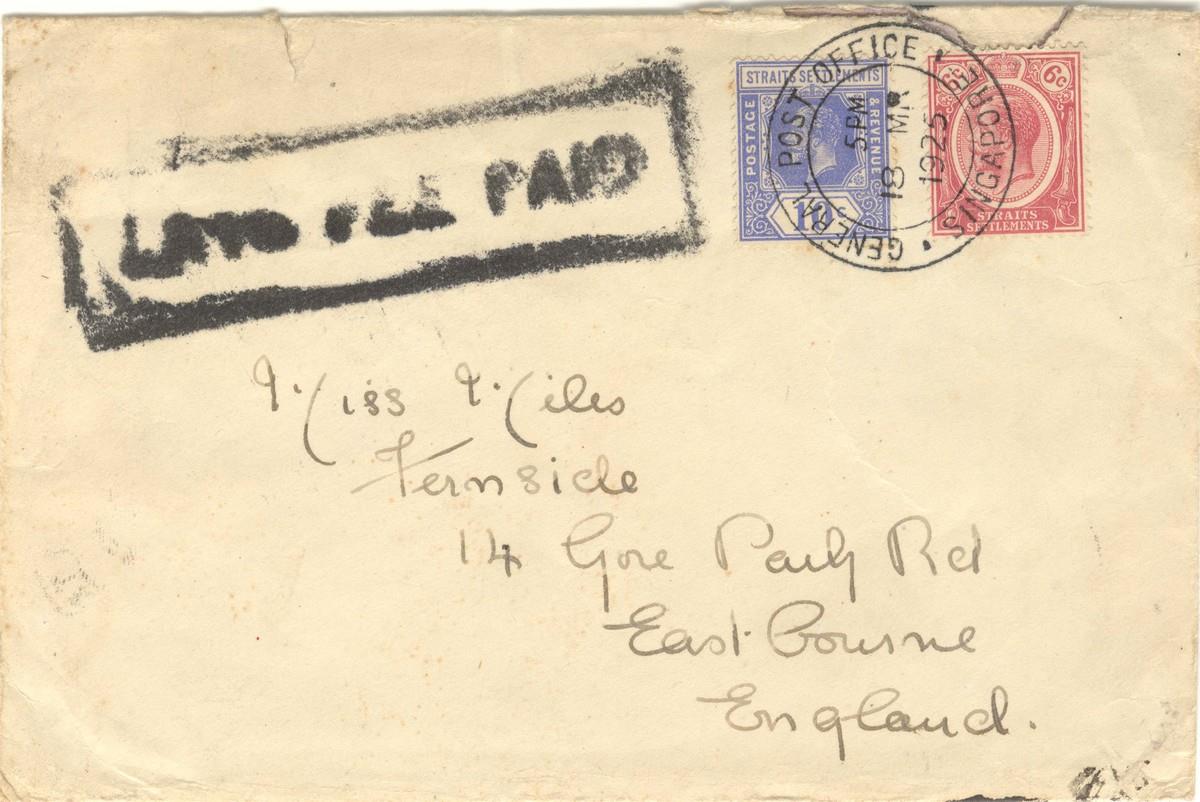 LATE FEE PAID
STRAITS SETTLEMENTS
POSTAGE
& REVENUE
10
GENERAL POST OFFICE
SINGAPORE
5.PM
18 MR
1925
6c 6c
STRAITS
SETTLEMENTS
Miss Miles
Fernside
14 Gore Park Rd
East Bourne
England.